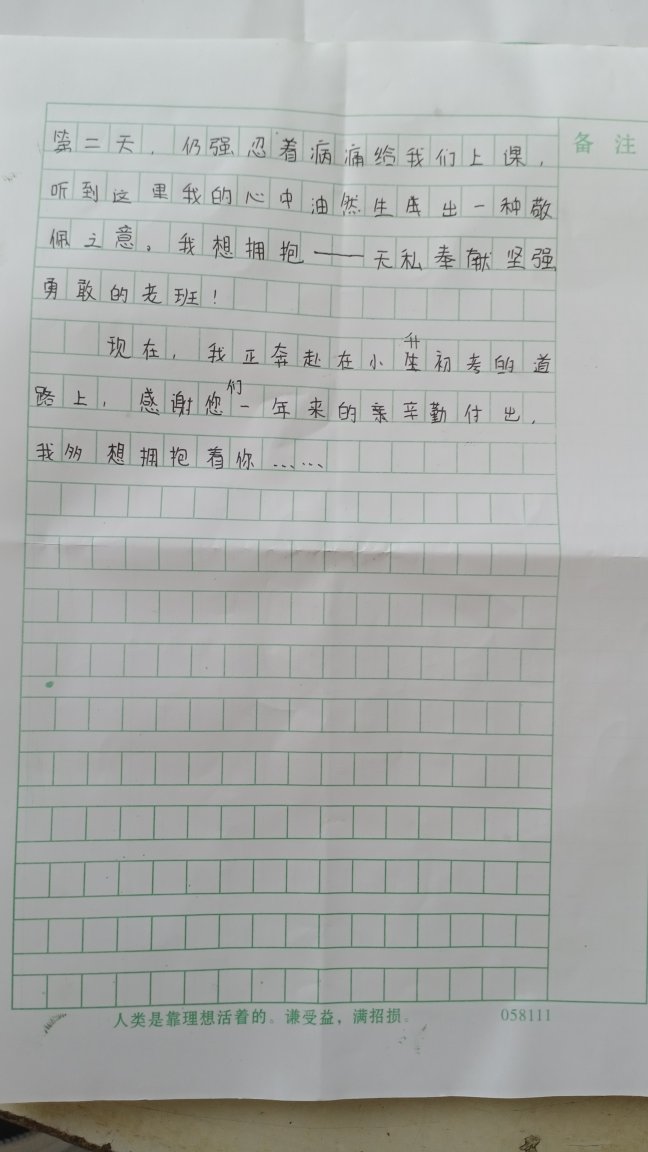 备注
第二天，仍强忍着病痛给我们上课，
听到这里我的心中油然生成出一种敬
佩之意。我想拥抱——无私奉献坚强
勇敢的老班！
现在，我正奔赴在小升初考的道
路上，感谢您们一年来的亲辛勤付出，
我多想拥抱着你……
人类是靠理想活着的。谦受益，满招损。
058111